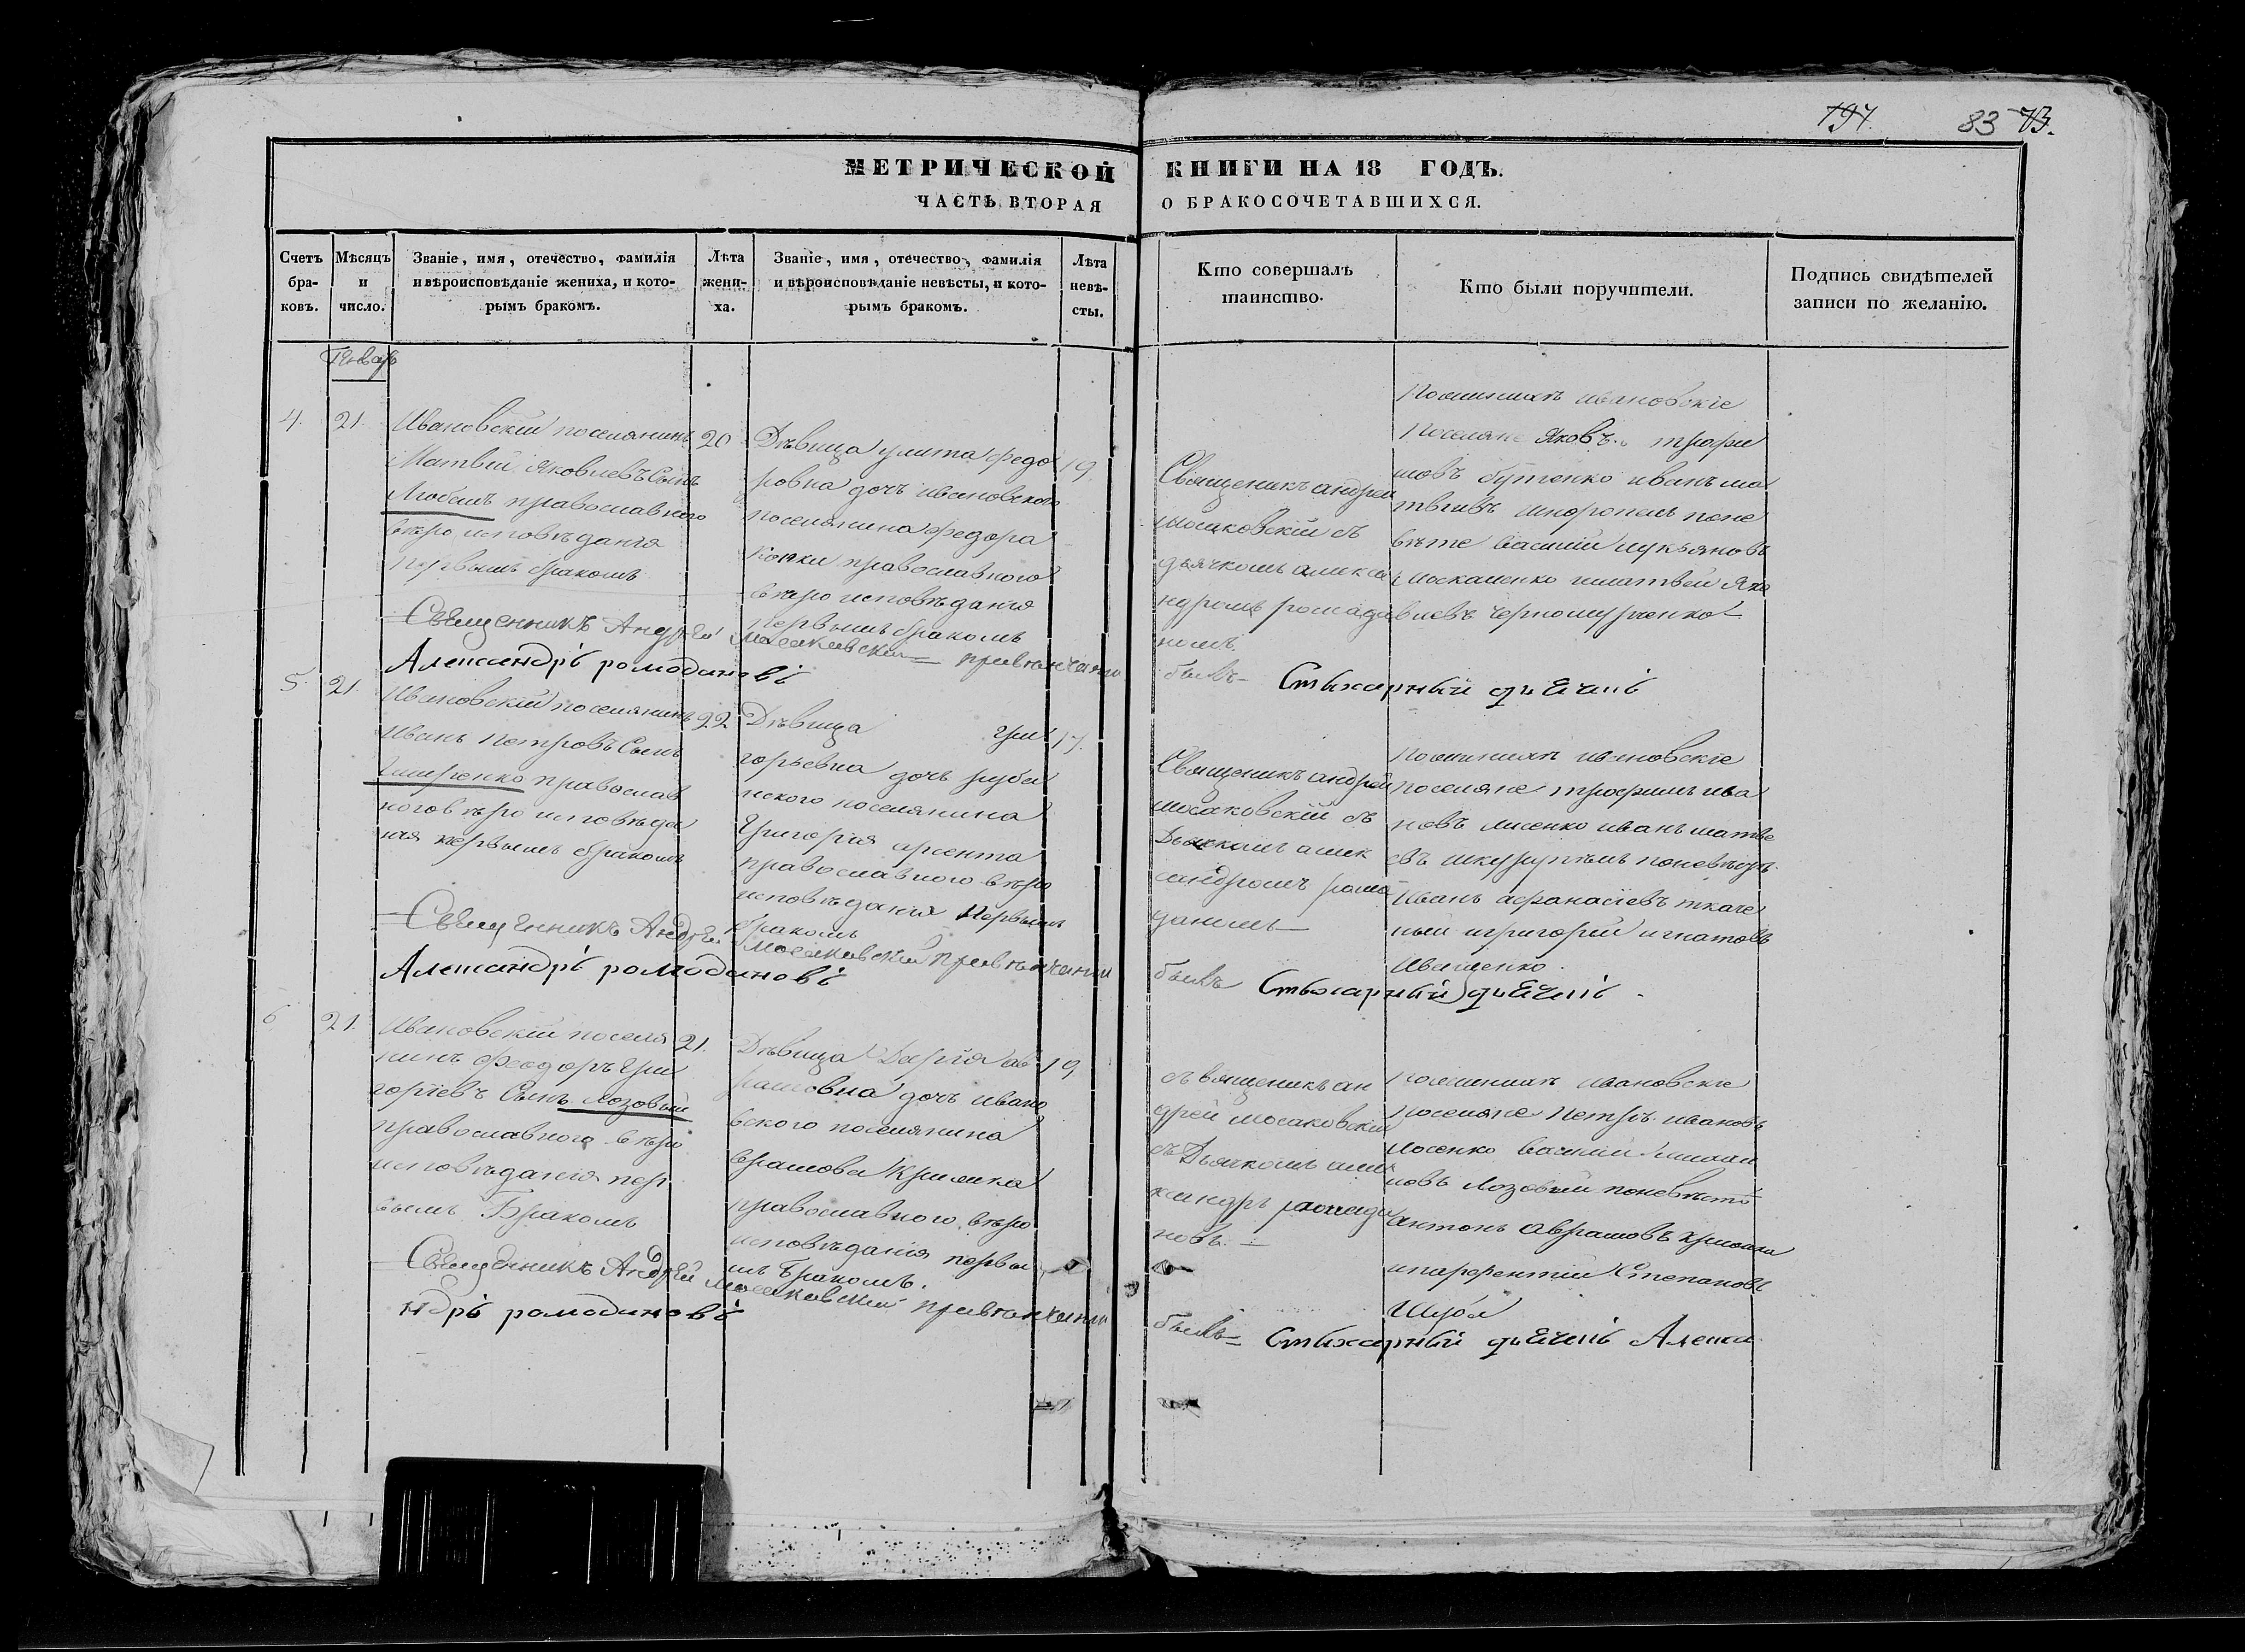 197. 83 73.
МЕТРИЧЕСКОЙ КНИГИ НА 18 ГОДЪ.
ЧАСТЬ ВТОРАЯ О БРАКОСОЧЕТАВШИХСЯ.
Счетъ бра-ковъ.
Мѣсяцъ и число.
Званіе, имя, отечество, фамилія
и вѣроисповѣданіе жениха, и кото-
рымъ бракомъ.
Лѣта жени-ха.
Званіе, имя, отечество, фамилія
и вѣроисповѣданіе невѣсты, и кото-
рымъ бракомъ.
Лѣта невѣ-сты.
Кто совершалъ
таинство.
Кто были поручители.
Подпись свидѣтелей
записи по желанію.
Генварь
4. 21.
Ивановскій поселянинъ
Матвій Яковлевъ Сынъ
православного
вѣро исповѣданія
первымъ бракомъ
20
Дѣвица улита федо
ровна дочъ ивановского
поселянина федора
православного
вѣро исповѣданія
первымъ бракомъ
19
Священикъ андрей
мосаковскій съ
дьячкомъ алекса
ндромъ ромада
номъ.
Поженихъ ивановскіе
поселяне Яковъ трофи
мовъ бутенко иванъ ма
твіивъ поне
вѣсте василій лукьяновъ
москаленко иматвей яко
влевъ
Священникъ Андрей Мосаковскій привѣнчаніи былъ
Александръ ромодановъ Стихарный дьячекъ
5. 21.
Ивановскій поселянинъ
Иванъ Петровъ Сынъ
православ
ного вѣро исповѣда
нія первымъ бракомъ
22
Дѣвица Гри
горьевна дочъ
нского поселянина
Григорія арсента
православного вѣро
исповѣданія Первымъ
бракомъ
17.
Священикъ андрей
мосаковскій съ
Дьячкомъ алек
сандромъ рома
даномъ
Поженихъ ивановскіе
поселяне трофимъ ива
новъ лисенко иванъ матве
евъ поневѣсте
Иванъ афанасіевъ ткаче
ный игригорій игнатовъ
Иващенко.
Священникъ Андрей Мосаковскій привѣнчаніи былъ
Александръ ромодановъ Стихарный дьячекъ.
6 21.
Ивановскій поселя
нинъ Феодоръ Гри
горіевъ Сынъ лозовый
православного вѣро
исповѣданія пер
вымъ Бракомъ
21.
Дѣвица Дарія ав
рамовна дочъ ивано
вского поселянина
аврамова
православного вѣро
исповѣданія первы
мъ Бракомъ.
19
священикъ ан
дрей мосаковскій
съ Дьячкомъ але
ксандръ ромада
новъ.
поженихъ ивановскіе
поселяне Петръ ивановъ
лосенко василій
новъ лозовый поневѣсто
антонъ аврамовъ
ипарфентій Степановъ
Шуба
Священникъ Андрей Мосаковскій привѣнчаніи былъ
Стихарный дьячекъ Алекса
ндръ ромодановъ